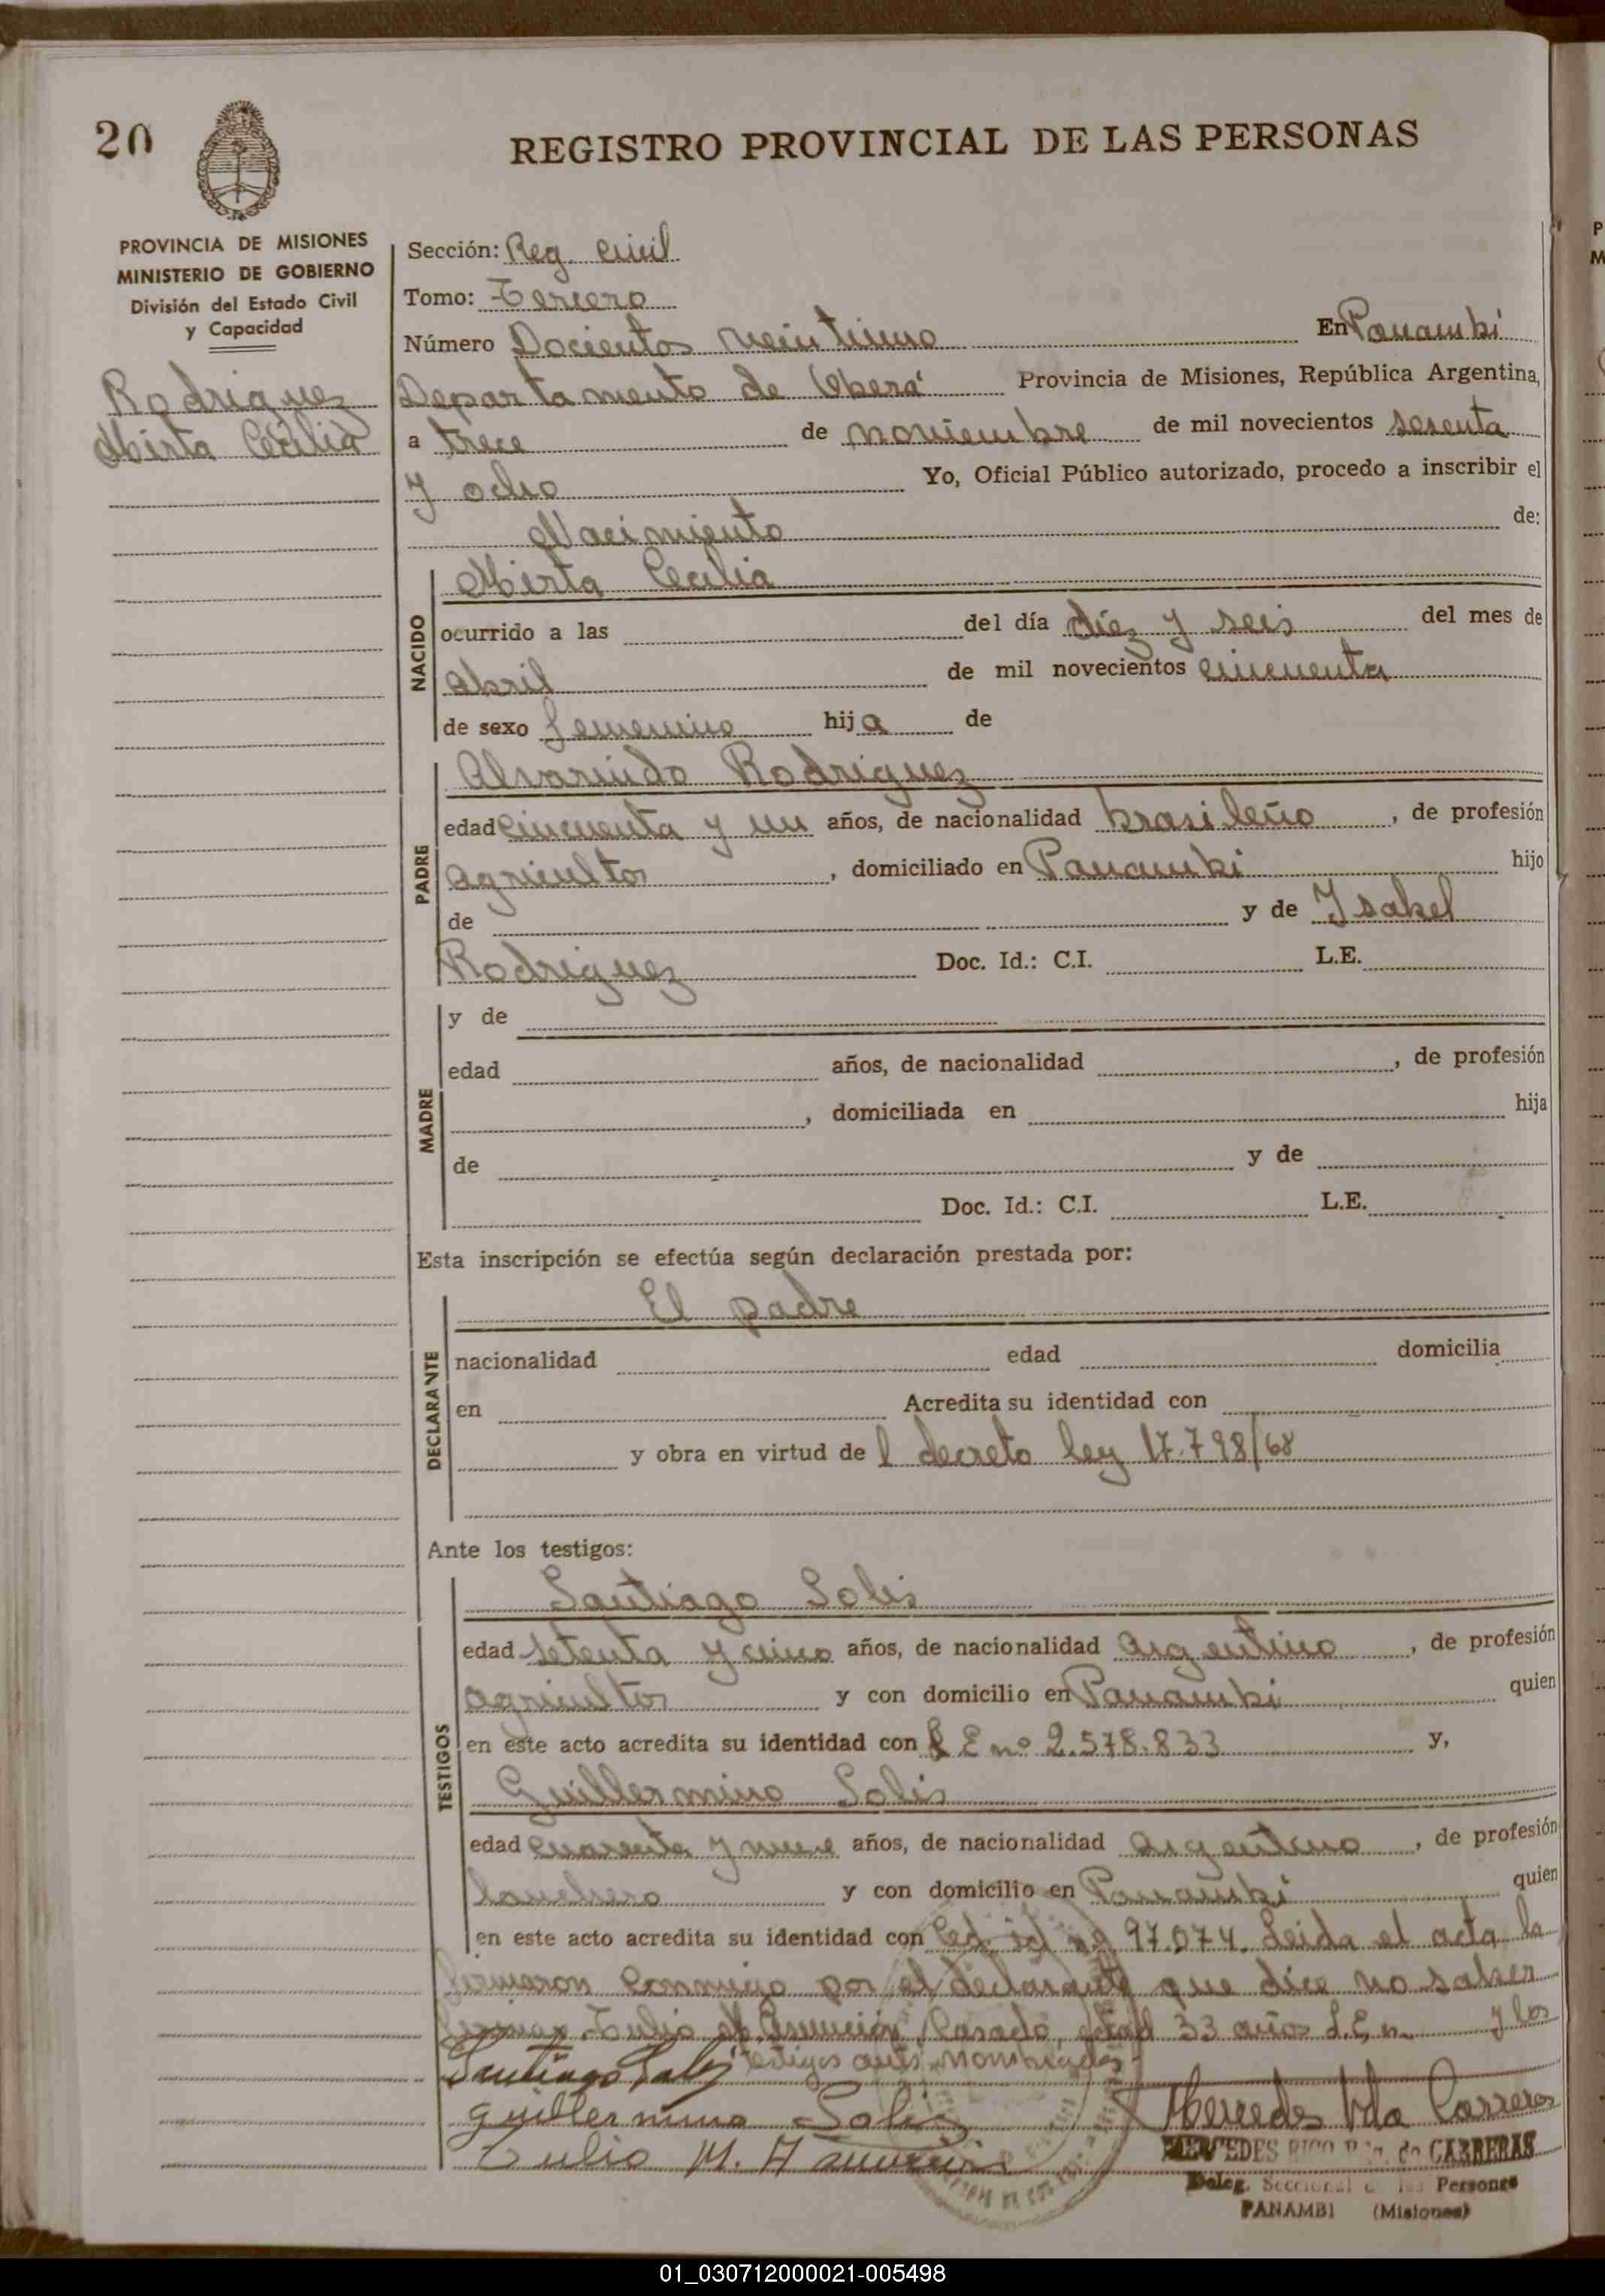 20
REGISTRO PROVINCIAL DE LAS PERSONAS
PROVINCIA DE MISIONES
MINISTERIO DE GOBIERNO
División del Estado Civil
y Capacidad
Rodriguez
Mirta Cecilia
Sección: Reg. Civil
Tomo: Tercero
Número Docientos veintiuno En Panambí
Departamento de Oberá Provincia de Misiones, República Argentina,
a trece de noviembre de mil novecientos sesenta
y ocho Yo, Oficial Público autorizado, procedo a inscribir el
Nacimiento de:
NACIDO
Mirta Cecilia
ocurrido a las del día diez y seis del mes de
abril de mil novecientos cincuenta
de sexo femenino hija de
PADRE
Alvarindo Rodriguez
edad cincuenta y un años, de nacionalidad brasileño, de profesión
agricultor, domiciliado en Panambí hijo
de y de Ysabel
Rodriguez Doc. Id.: C.I. L.E.
MADRE
y de
edad años, de nacionalidad , de profesión
, domiciliada en hija
de y de
Doc. Id.: C.I. L.E.
Esta inscripción se efectúa según declaración prestada por:
DECLARANTE
El padre
nacionalidad edad domicilia
en Acredita su identidad con
y obra en virtud de l decreto ley 17.798/68
Ante los testigos:
TESTIGOS
Santiago Solis
edad setenta y cinco años, de nacionalidad argentino, de profesión
agricultor y con domicilio en Panambí quien
en este acto acredita su identidad con L E nº 2.578.833 y,
Guillermino Solis
edad cuarenta y nueve años, de nacionalidad argentino, de profesión
lanchero y con domicilio en Panambí quien
en este acto acredita su identidad con Ced. id nº 97.074. Leida el acta la
firmaron conmigo por el declarante que dice no saber
firmar Tulio M. Asunción, Casado, edad 33 años L.E. n. y los
testigos antes nombrados
Santiago Solis
guillermino Solis
Tulio M.
Mercedes Vda Carreras
MERCEDES RICO Vda. de CABRERAS
Deleg. Seccional de las Personas
PANAMBI (Misiones)
01_030712000021-005498